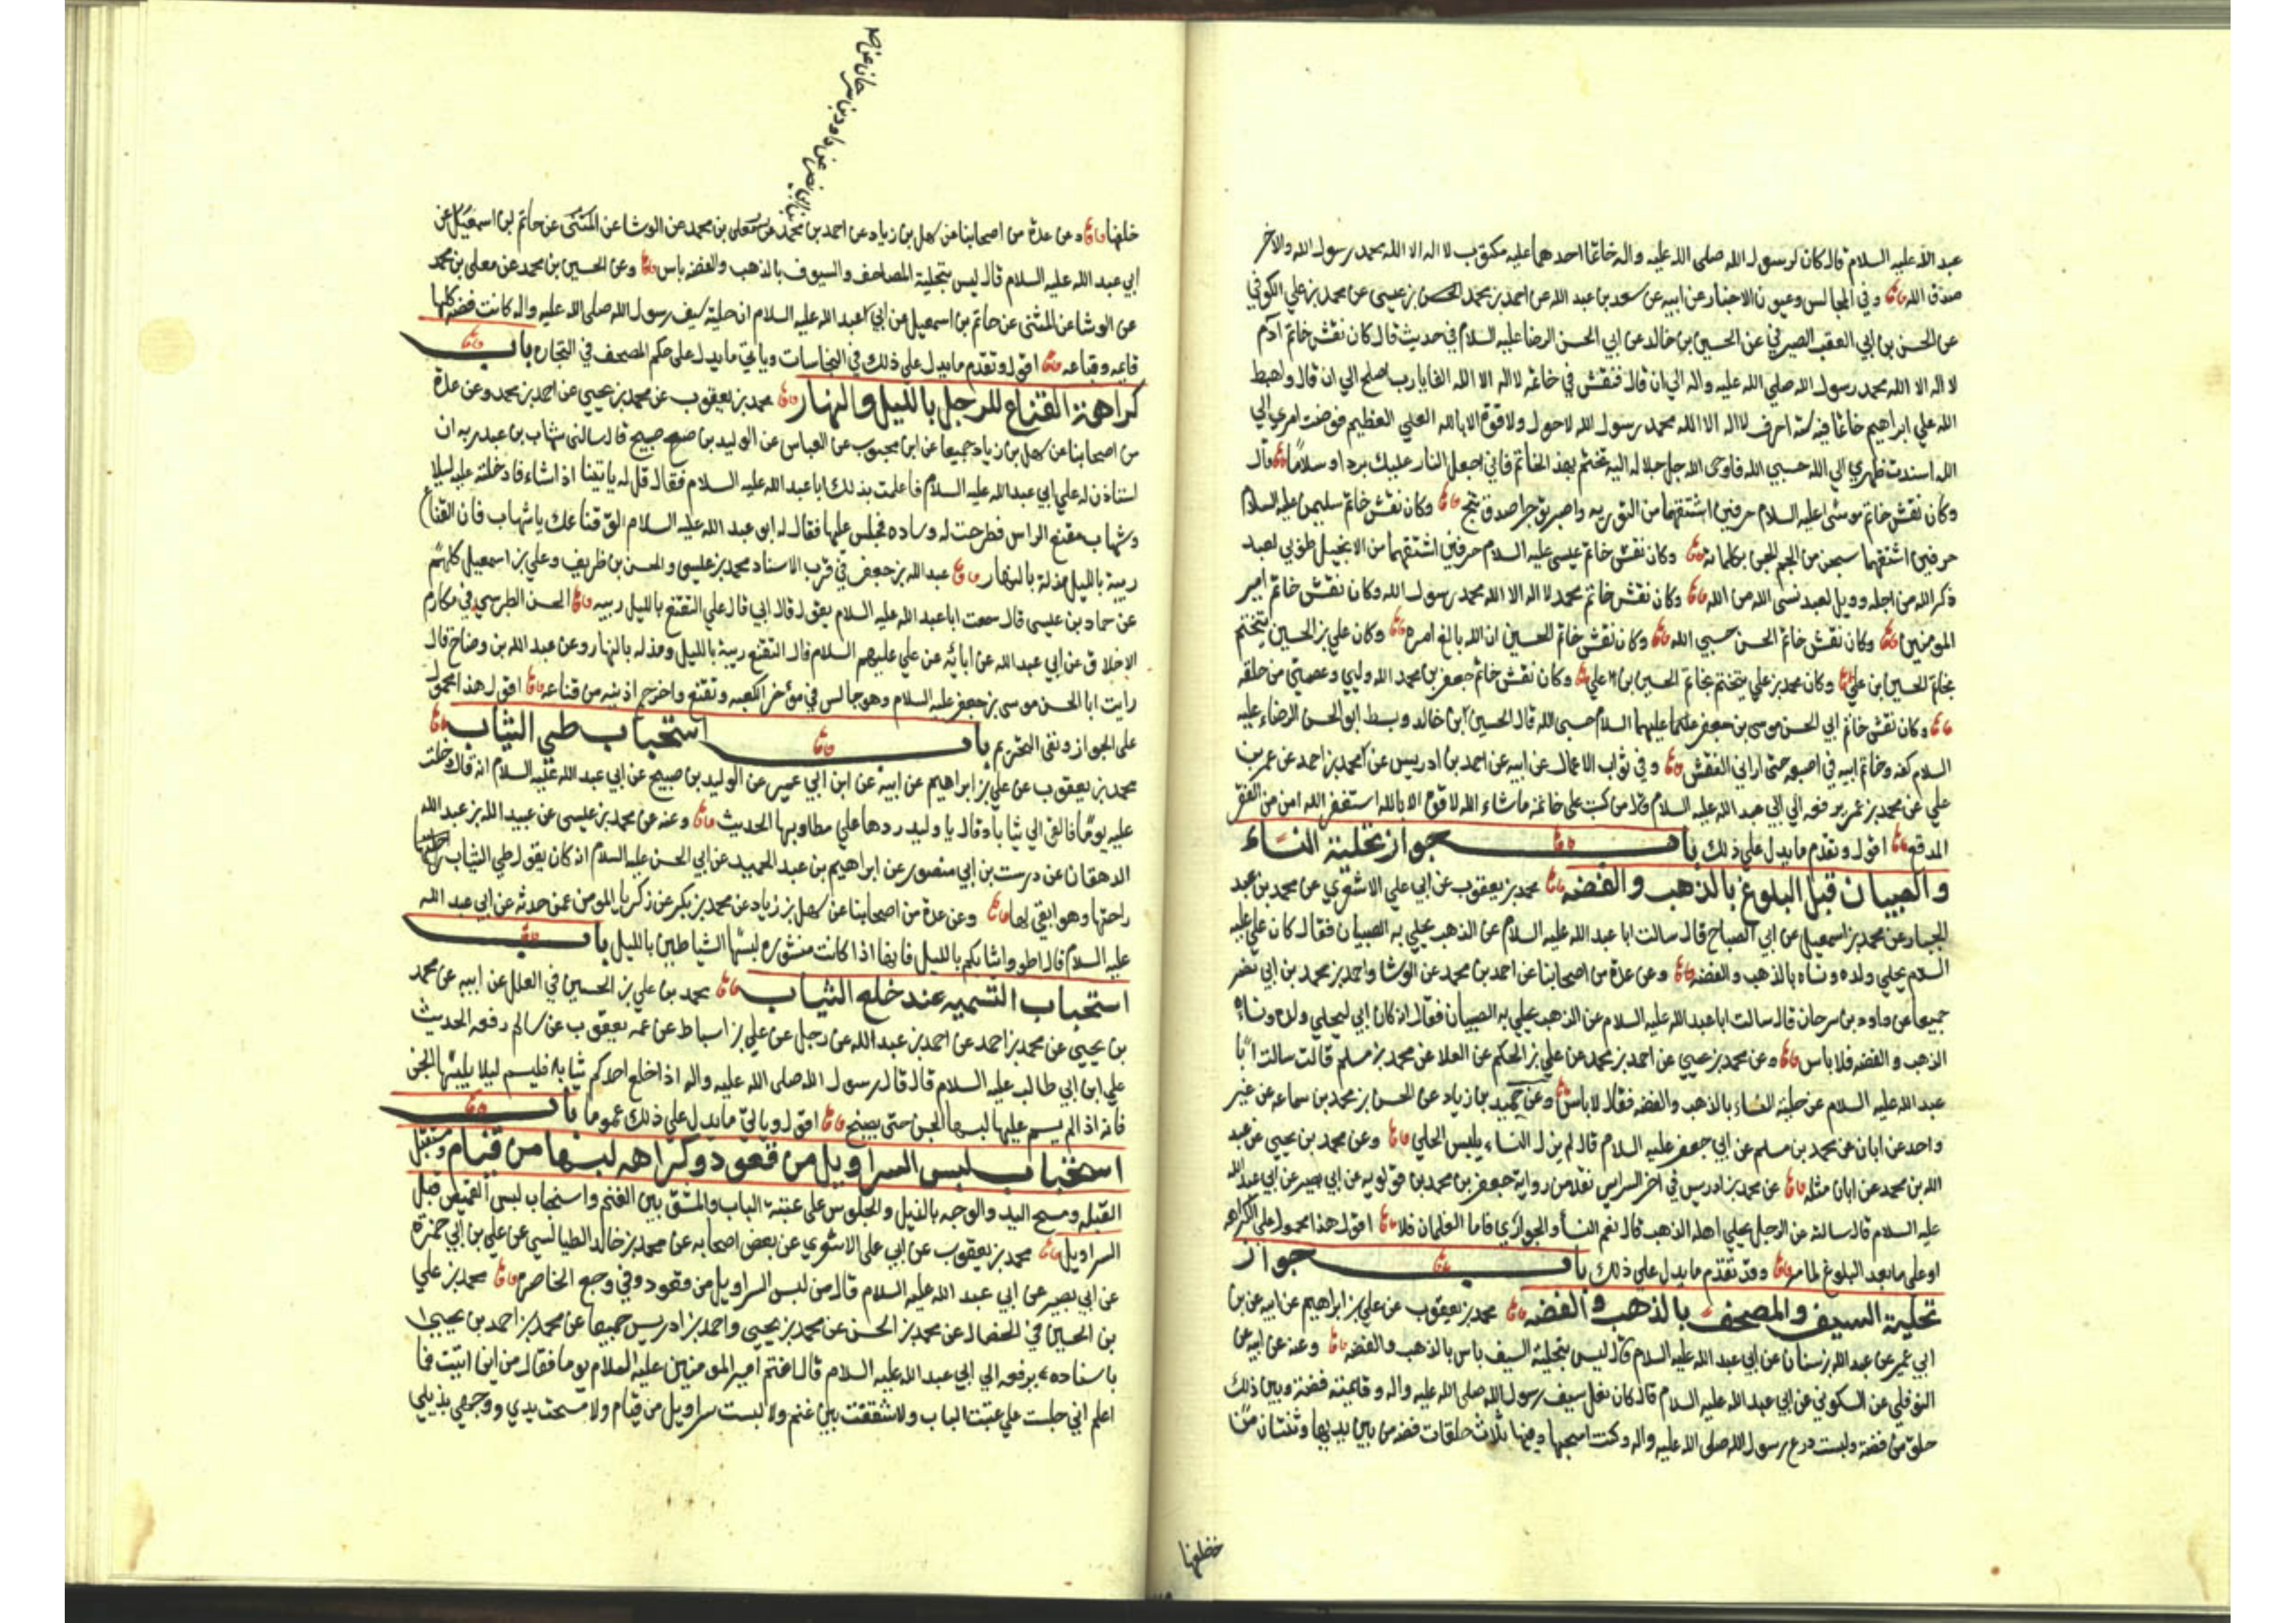 عبد الله عليه السلام قال كان لرسول الله صلى الله عليه واله خاتما احدهما عليه مكتوب لا اله الا الله محمد رسول الله والاخر
صدق الله وفي المجالس وعيون الاخبار عن ابيه عن سعد بن عبد الله عن احمد بن محمد بن عيسى عن محمد بن علي الكوفي
عن الحسن بن ابي العقب الصيرفي عن الحسين بن خالد عن ابي الحسن الرضا عليه السلام في حديث قال كان نقش خاتم ادم
لا اله الا الله محمد رسول الله صلى الله عليه واله الى ان قال فنقش في خاتمه لا اله الا الله الفا يا رب اصلح الي ان قال واهبط
الله علي ابراهيم خاتما فيه سته احرف لا اله الا الله محمد رسول الله لا حول ولا قوة الا بالله العلي العظيم فوضت امري الي
الله اسندت ظهري الي الله حسبي الله فاوحى الله جل جلاله اليه تختم بهذ الخاتم فاني اجعل النار عليك بردا وسلاما قال
وكان نقش خاتم موسى عليه السلام حرفين اشتقهما من التوريه واصبر تؤجر اصدق تنج وكان نقش خاتم سليمن عليه السلام
حرفين اشتقهما سبحن من الجم الجن بكلماته وكان نقش خاتم عيسى عليه السلام حرفين اشتقهما من الانجيل طوبي لعبد
ذكر الله من اجله وويل لعبد نسى الله من الله وكان نقش خاتم محمد لا اله الا الله محمد رسول الله وكان نقش خاتم امير
المومنين وكان نقش خاتم الحسن حسبي الله وكان نقش خاتم الحسين ان الله بالغ امره وكان علي بن الحسين يتختم
بخاتم الحسين ابن علي وكان محمد بن علي يتختم بخاتم الحسين بن علي وكان نقش خاتم جعفر بن محمد الله وليي وعصمتي من خلقه
وكان نقش خاتم ابي الحسن موسى بن جعفر عليهما السلام حسبى الله قال الحسين ابن خالد وبسط ابو الحسن الرضاء عليه
السلام كفه وخاتم ابيه في اصبعه حتى اراني النقش وفي ثواب الاعمال عن ابيه عن احمد بن ادريس عن محمد بن احمد عن عمر بن
علي عن محمد بن عمر يرفعه الي ابي عبد الله عليه السلام قال من كتب على خاتمه ماشاء الله لا قوة الا بالله استغفر الله امن من الفقر
المدقع اقول وتقدم ما يدل علي ذلك باب جواز تحلية النساء
والصبيان قبل البلوغ بالذهب والفضه محمد بن يعقوب عن ابي علي الاشعري عن محمد بن عبد
الجبار عن محمد بن اسمعيل عن ابي الصباح قال سالت ابا عبد الله عليه السلام عن الذهب يحلي به الصبيان فقال كان علي عليه
السلام يحلي ولده ونساه بالذهب والفضه وعن عدة من اصحابنا عن احمد بن محمد عن الوشا واحمد بن محمد بن ابي نصر
جميعا عن داود بن سرحان قال سالت ابا عبد الله عليه السلام عن الذهب يحلي به الصبيان فقال انه كان ابي ليحلي ولده ونساءه
الذهب والفضه فلا باس وعن محمد بن يحيي عن احمد بن محمد عن علي بن الحكم عن العلا عن محمد بن مسلم قال سالت ابا
عبد الله عليه السلام عن حلية النساء بالذهب والفضه فقال لا باس وعن حميد بن زياد عن الحسن بن محمد بن سماعه عن غير
واحد عن ابان عن محمد بن مسلم عن ابي جعفر عليه السلام قال لم يزل النساء يلبس الحلي وعن محمد بن يحيي عن عبد
الله بن محمد عن ابان مثله عن محمد بن ادريس في اخر السراير نقلا من رواية جعفر بن محمد بن قولويه عن ابي بصير عن ابي عبد الله
عليه السلام قال سالته عن الرجل يحلي اهله الذهب قال نعم النسا والجواري فاما الغلمان فلا اقول هذا محمول علي الكراهه
او على ما بعد البلوغ لما مر وقد تقدم ما يدل علي ذلك باب جواز
تحلية السيف والمصحف بالذهب والفضه محمد بن يعقوب عن علي بن ابراهيم عن ابيه عن بن
ابي عمير عن عبد الله بن سنان عن ابي عبد الله عليه السلام قال ليس بتحلية السيف باس بالذهب والفضه وعنه عن ابيه عن
النوفلي عن السكوني عن ابي عبد الله عليه السلام قال كان نعل سيف رسول الله صلى الله عليه واله وقائمته فضة وبين ذلك
حلق من فضة ولبست درع رسول الله صلى الله عليه واله وكنت اسحبها وفيها ثلاث حلقات فضه من بين يديها وثنتان من
خلفها
خلفها وعن عدة من اصحابنا عن سهل بن زياد عن احمد بن محمد عن معلى بن محمد عن الوشا عن المثنى عن حاتم بن اسمعيل عن
ابي عبد الله عليه السلام قال ليس بتحلية المصاحف والسيوف بالذهب والفضه باس وعن الحسين بن محمد عن معلى بن محمد
عن الوشا عن المثنى عن حاتم بن اسمعيل عن ابي عبد الله عليه السلام ان حلية سيف رسول الله صلى الله عليه واله كانت فضه كلها
قايمه وقباعه اقول وتقدم ما يدل علي ذلك في النجاسات وياتي ما يدل على حكم المصحف في التجاره باب
كراهة القناع للرجل بالليل والنهار محمد بن يعقوب عن محمد بن يحيي عن احمد بن محمد وعن عدة
من اصحابنا عن سهل بن زياد جميعا عن ابن محبوب عن العباس عن الوليد بن صبيح قال سالنى شهاب بن عبد ربه ان
استاذن له علي ابي عبد الله عليه السلام فاعلمت بذلك ابا عبد الله عليه السلام فقال قل له ياتينا اذا شاء فادخلته عليه ليلا
وشهاب مقنع الراس فطرحت له وساده فجلس عليها فقال له ابو عبد الله عليه السلام الق قناعك يا شهاب فان القناع
ريبة بالليل مذلة بالنهار عبد الله بن جعفر في قرب الاسناد محمد بن عيسى والحسن بن ظريف وعلي بن اسمعيل كلهم
عن حماد بن عيسى قال سمعت ابا عبد الله عليه السلام يقول قال ابي قال علي التقنع بالليل ريبه الحسن الطبرسي في مكارم
الاخلاق عن ابي عبد الله عن ابائه عن علي عليهم السلام قال التقنع ريبة بالليل ومذله بالنهار وعن عبد الله بن وضاح قال
رايت ابا الحسن موسى بن جعفر عليه السلام وهو جالس في مؤخر الكعبه وتقنع واخرج اذنيه من قناعه اقول هذا محمول
على الجواز ونفى التحريم باب استحباب طي الثياب
محمد بن يعقوب عن علي بن ابراهيم عن ابيه عن ابن ابي عمير عن الوليد بن صبيح عن ابي عبد الله عليه السلام انه قال دخلت
عليه يوما فالقى الي ثيابا وقال يا وليد ردها علي مطاويها الحديث وعنه عن محمد بن عيسى عن عبيد الله بن عبد الله
الدهقان عن درست بن ابي منصور عن ابراهيم بن عبد الحميد عن ابي الحسن عليه السلام انه كان يقول طي الثياب
راحتها وهو ابقى لها وعن عدة من اصحابنا عن سهل بن زياد عن محمد بن بكر عن زكريا المومن عمن حدثه عن ابي عبد الله
عليه السلام قال اطووا ثيابكم بالليل فانها اذا كانت منشوره لبستها الشياطين بالليل باب
استحباب التسميه عند خلع الثياب محمد بن علي بن الحسين في العلل عن ابيه عن محمد
بن يحيي عن محمد بن احمد عن احمد بن عبد الله عن رجل عن علي بن اسباط عن عمه يعقوب عن سالم رفعه الحديث
علي ابن ابي طالب عليه السلام قال قال رسول الله صلى الله عليه واله اذا خلع احدكم ثيابه فليسم ليلا يلبسها الجن
فانه اذ الم يسم عليها لبسها الجن حتى يصبح اقول وياتي ما يدل علي ذلك عموما باب
استحباب لبس السراويل من قعود وكراهه لبسها من قيام ومستقبل
القبله ومسح اليد والوجه بالذيل والجلوس على عتبة الباب والشق بين الغنم واستحباب لبس القميص قبل
السراويل محمد بن يعقوب عن ابي على الاشعري عن بعض اصحابه عن محمد بن خالد الطيالسي عن علي بن ابي حمزة
عن ابي بصير عن ابي عبد الله عليه السلام قال من لبس السراويل من قعود وقي وجع الخاصره محمد بن علي
بن الحسين في الخصال عن محمد بن الحسن عن محمد بن يحيي واحمد بن ادريس جميعا عن محمد بن احمد بن يحيي
باسناده يرفعه الي ابي عبد الله عليه السلام قال اغتم امير المومنين عليه السلام يوما فقال من اين اتيت فما
اعلم اني جلست علي عتبة الباب ولا شققت بين غنم ولا لبست سراويل من قيام ولا مسحت يدي ووجهي بذيلي